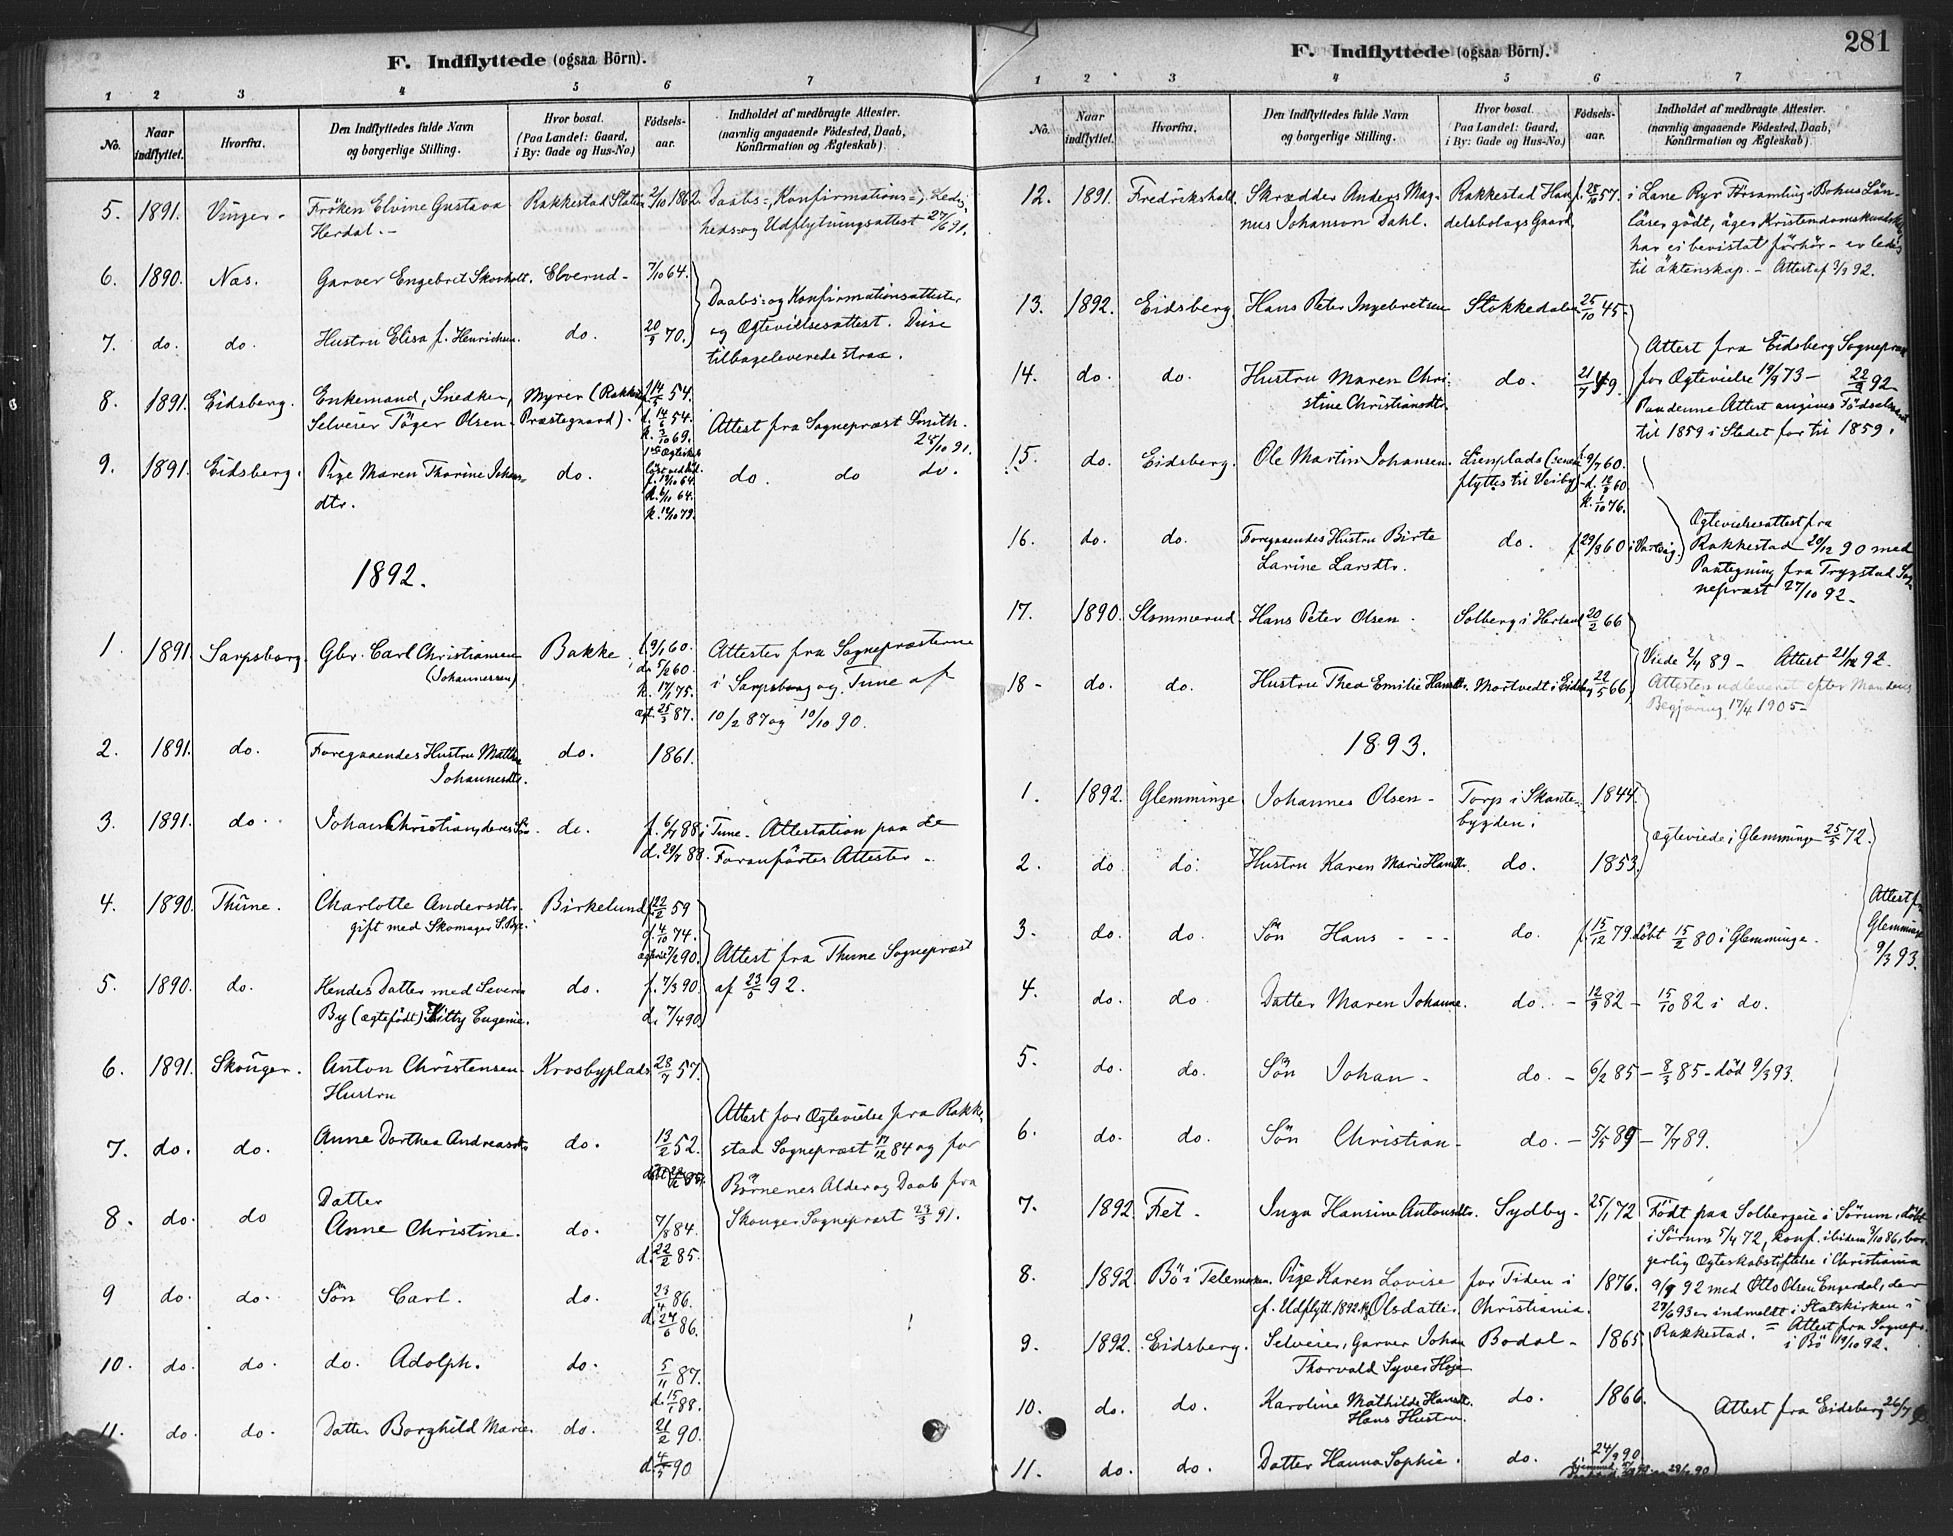 F. Indflyttede (ogsaa Börn).
1 2 3 4 5 6 7
No. Naar indflyttet. Hvorfra. Den Indflyttedes fulde Navn og borgerlige Stilling. Hvor bosat. (Paa Landet: Gaard, i By: Gade og Hus-No.) Födsels-aar. Indholdet af medbragte Attester. (navnlig angaaende Födested, Daab, Konfirmation og Ægteskab)
5. 1891. Vinger - Fröken Elvine Gustava Rakkestad Station 2/10 1862. Daabs-, Konfirmations-, Ledig-
Herdal. - heds og Udflytningsattest 27/6 91.
6. 1890. Nas. Garver Engebrit Skovholt. Elverud - 7/10 64.
Daabs- og Konfirmationsattester
7. do. do. Hustru Elisa f. Henrichsen. do. 20/9 70. og Ægtevielsesattest. Disse
tilbageleverede strax.
8. 1891. Eidsberg. Enkemand, Snedker, Myrer (Rakkestad f. 14/5 54.
Selveier Töger Olsen. Præstegaard). d. 14/6 54. Attest fra Sognepræst Smith.
k. 3/10 69. 25/10 91.
9. 1891. Eidsberg. Pige Maren Thorine Johans- do. do. do do.
dtr. k. 12/10 79.
1892.
1. 1891. Sarpsborg. Gbr. Carl Christiansen Bakke f. 9/1 60. Attester fra Sognepræsterne
(Johannessen) d. 5/2 60 i Sarpsborg og Tune af
k. 17/7 75. 10/2 87 og 10/10 90.
ægt. 25/3 87.
2. 1891. do. Foregaaendes Hustru Mathea do. 1861.
Johannesdtr.
3. 1891. do. Johan Christian, deres Sön. do. f. 6/7 88 i Tune. Attestation paa de
d. 29/7 88. Foranförtes Attester -
4. 1890. Thune. Charlotte Andersdtr. Birkelund f. 22/2 59
gift med Skomager S. By. d. 4/10 74.
7/2 90. Attest fra Thune Sognepræst
5. 1890. do. Hendes Datter med Severin do. f. 7/3 90. af 23/5 92.
By (ægtefödt) Kitty Eugenie. d. 7/4 90
6. 1891. Skouger. Anton Christensen Krosbyplads 28/7 57.
Hustru
Attest for Ægtevielse fra Rakke-
7. do. do. Anne Dorthea Andreasdtr. do. 13/2 52. stad Sognepræst 17/12 84 og for
Börnenes Alder og Daab fra
8. do. do Datter Skouger Sognepræst 23/3 91.
Anne Christine. do. 7/8 84.
d. 22/2 85.
9 do. do. Sön Carl. do. 23/4 86.
d. 24/6 86.
10. do. do. do. Adolph. do. 5/11 87.
d. 15/1 88.
11. do. do. Datter Borghild Marie. do. 21/2 90.
d. 4/5 90
F. Indflyttede (ogsaa Börn).
281
1 2 3 4 5 6 7
No. Naar indflyttet. Hvorfra. Den Indflyttedes fulde Navn og borgerlige Stilling. Hvor bosat. Paa Landet: Gaard, i By: Gade og Hus-No.) Födsels-aar. Indholdet af medbragte Attester. (navnlig angaaende Födested, Daab, Konfirmation og Ægteskab)
12. 1891. Fredrikshald. Skrædder Anders Mag- Rakkestad Han- f. 25/10 57. i Lane Ryr Församling i Bohus Län -
nus Johanson Dahl. delsbolags Gaard, läser godt, äger Kristendomskundskap,
har ei bevistat förhör - er ledig
til äktenskap. - Attest af 3/3 92.
13. 1892. Eidsberg Hans Peter Ingebretsen Stokkedalen 25/10 45-
Attest fra Eidsberg Sognepræst
14. do. do. Hustru Maren Chri- do. 21/7 49. for Ægtevielse 19/9 73 - 22/9 92
stine Christiansdtr. Paa denne Attest angives Födselsaaret
til 1859 i Stedet for til 1859.
15. do. Eidsberg. Ole Martin Johansen. Lienplads (senere f. 9/7 60.
flyttes til Veiby) - d. 12/9 60
k. 1/10 76. Ægtevielsesattest fra
16. do. do. Foregaaendes Hustru Birte do. f. 29/8 60 i Varteig. Rakkestad 29/12 90 med
Larine Larsdtr. Paategning fra Trygstad Sog-
nepræst 27/10 92 -
17. 1890. Slommerud. Hans Peter Olsen - Solberg i Herland 20/2 66
Viede 2/4 89 - Attest 21/12 92.
18 - do. do. Hustru Thea Emilie Hansdtr. Mortvedt i Eidsberg 22/5 66, Attesten udleveret efter Mandens
Begjæring 17/4 1905 -
1893.
1. 1892. Glemminge. Johannes Olsen - Torp i Skante- 1844.
bygden. Ægteviede i Glemminge 25/5 72.
2. do. do. Hustru Karen Marie Hansdtr. do. 1853.
Attest fra
3. do. do. Sön Hans - - - do. f. 15/12 79. döbt 15/2 80 i Glemminge. Glemminge
9/3 93.
4. do. do. Datter Maren Johanne. do. - 12/9 82 - 15/10 82 i do.
5. do. do. Sön Johan - do. - 6/2 85 - 8/3 85 - död 9/3 93.
6. do. do. Sön Christian - do. - 5/5 89 - 7/7 89.
7. 1892 Fet - Inga Hansine Antonsdtr. Sydby - 25/1 72 Födt paa Solbergeie i Sörum, döbt
i Sörum 5/4 72, konf. ibidem 3/10 86, bor-
gerlig Ægteskabstiftelse i Christiania
8. 1892. Bö i Telemarken. Pige Karen Lovise for Tiden i 1876. 9/9 92 med Otto Olsen Engerdal, der
cf. Udflytt. 1892. Olsdatter. Christiania. 29/6 93 er indmeldt i Statskirken i
Rakkestad. = Attest fra Sognepr.
9. 1892. Eidsberg. Selveier, Garver Johan Bodal - 1865. i Bö 19/10 92.
Thorvald Syver Hoje
10. do. do. Karoline Mathilde Hansdtr. do. 1866. Attest fra Eidsberg 26/7
Hans Hustru
11. do. do. Datter Hanna Sophie. do. 24/9 90